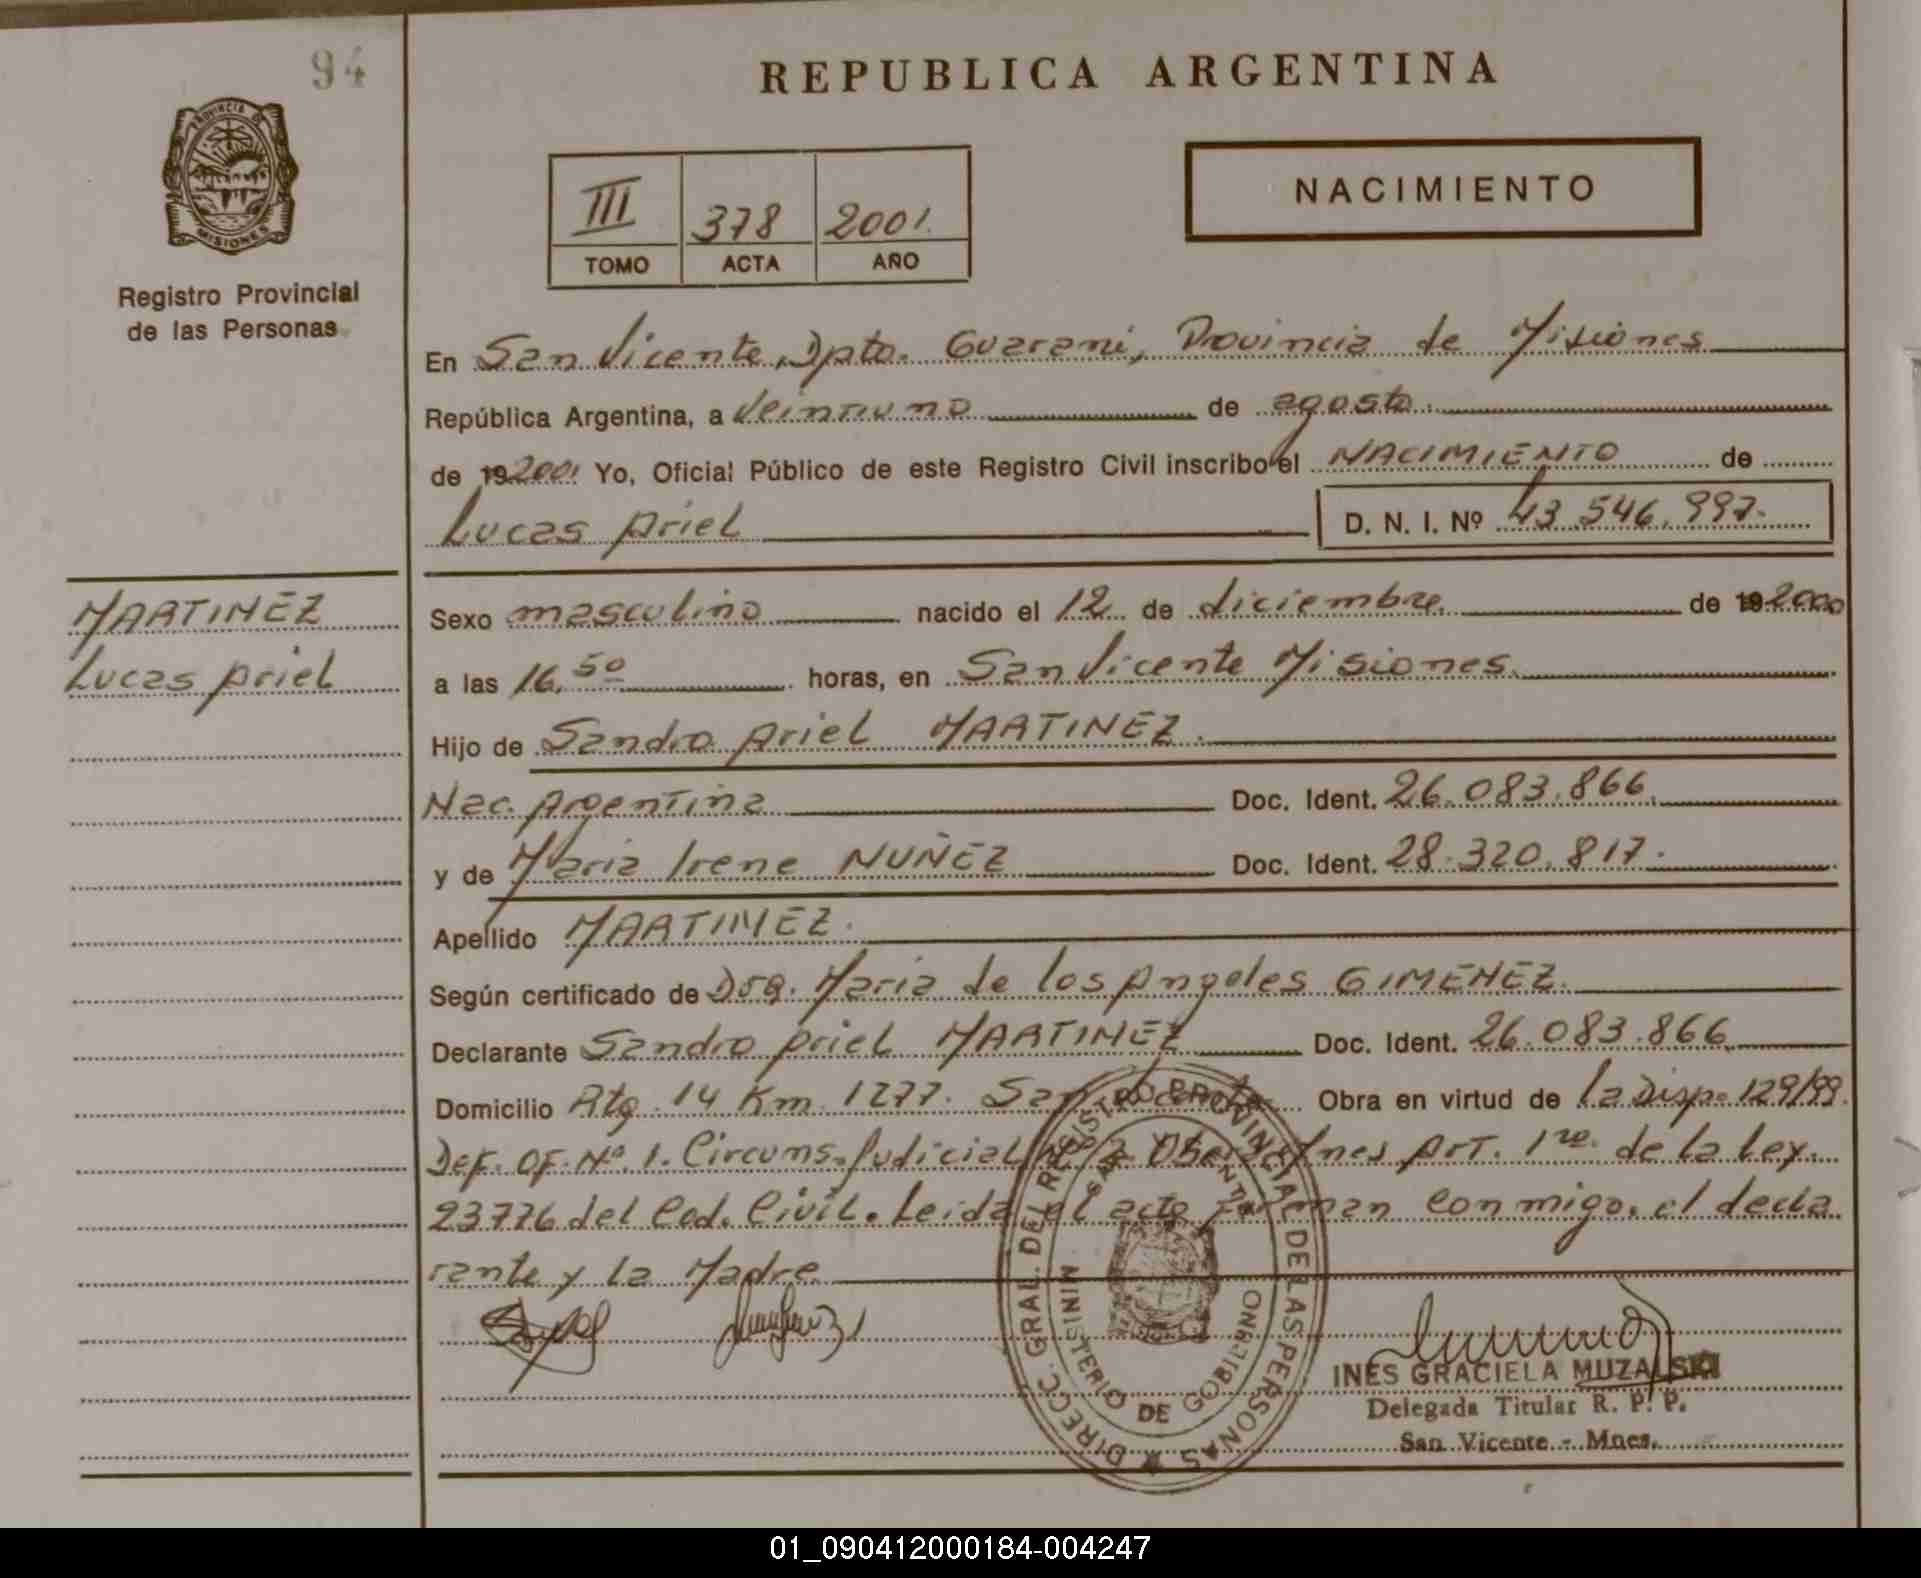 94
REPUBLICA ARGENTINA
PROVINCIA DE
MISIONES
Registro Provincial
de las Personas
III 378 2001.
TOMO ACTA AÑO
NACIMIENTO
En San Vicente, Dpto. Guarani, Provincia de Misiones
República Argentina, a veintiuno de agosto.
de 192001 Yo, Oficial Público de este Registro Civil inscribo el NACIMIENTO de
Lucas Ariel D. N. I. Nº 43.546.997.
MARTINEZ
Lucas Ariel
Sexo masculino nacido el 12 de diciembre de 192000
a las 16,50 horas, en San Vicente Misiones.
Hijo de Sandro Ariel MARTINEZ.
Nac. Argentina Doc. Ident. 26.083.866.
y de Maria Irene NUÑEZ Doc. Ident. 28.320.817.
Apellido MARTINEZ.
Según certificado de Dra. Maria de los Angeles GIMENEZ.
Declarante Sandro Ariel MARTINEZ Doc. Ident. 26.083.866
Domicilio Rta. 14 Km. 1277. San Vicente Obra en virtud de la Disp. 129/99.
Def. Of. Nº 1. Circuns. Judicial Mnes Art. 1ro. de la Ley.
23776 del Cod. Civil. Leida el acta Firman conmigo, el decla
rante y la Madre
DIRECC. GRAL. DEL REGISTRO PROVINCIAL DE LAS PERSONAS
SAN VICENTE
MINISTERIO DE GOBIERNO
INES GRACIELA MUZALSKI
Delegada Titular R. P. P.
San Vicente - Mnes.
01_090412000184-004247